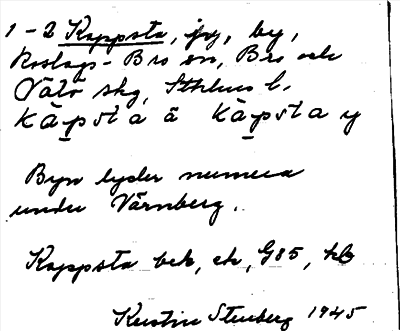 1-2 Kappsta, by,
Roslags-Bro sn, Bro och
Vätö skg, Sthlms l.
kȧp̱sta ä kȧp̱sta y
Byn lyder numera
under Värnberg.
Kappsta bek, ek, G85, hb
Kerstin Stenberg 1945